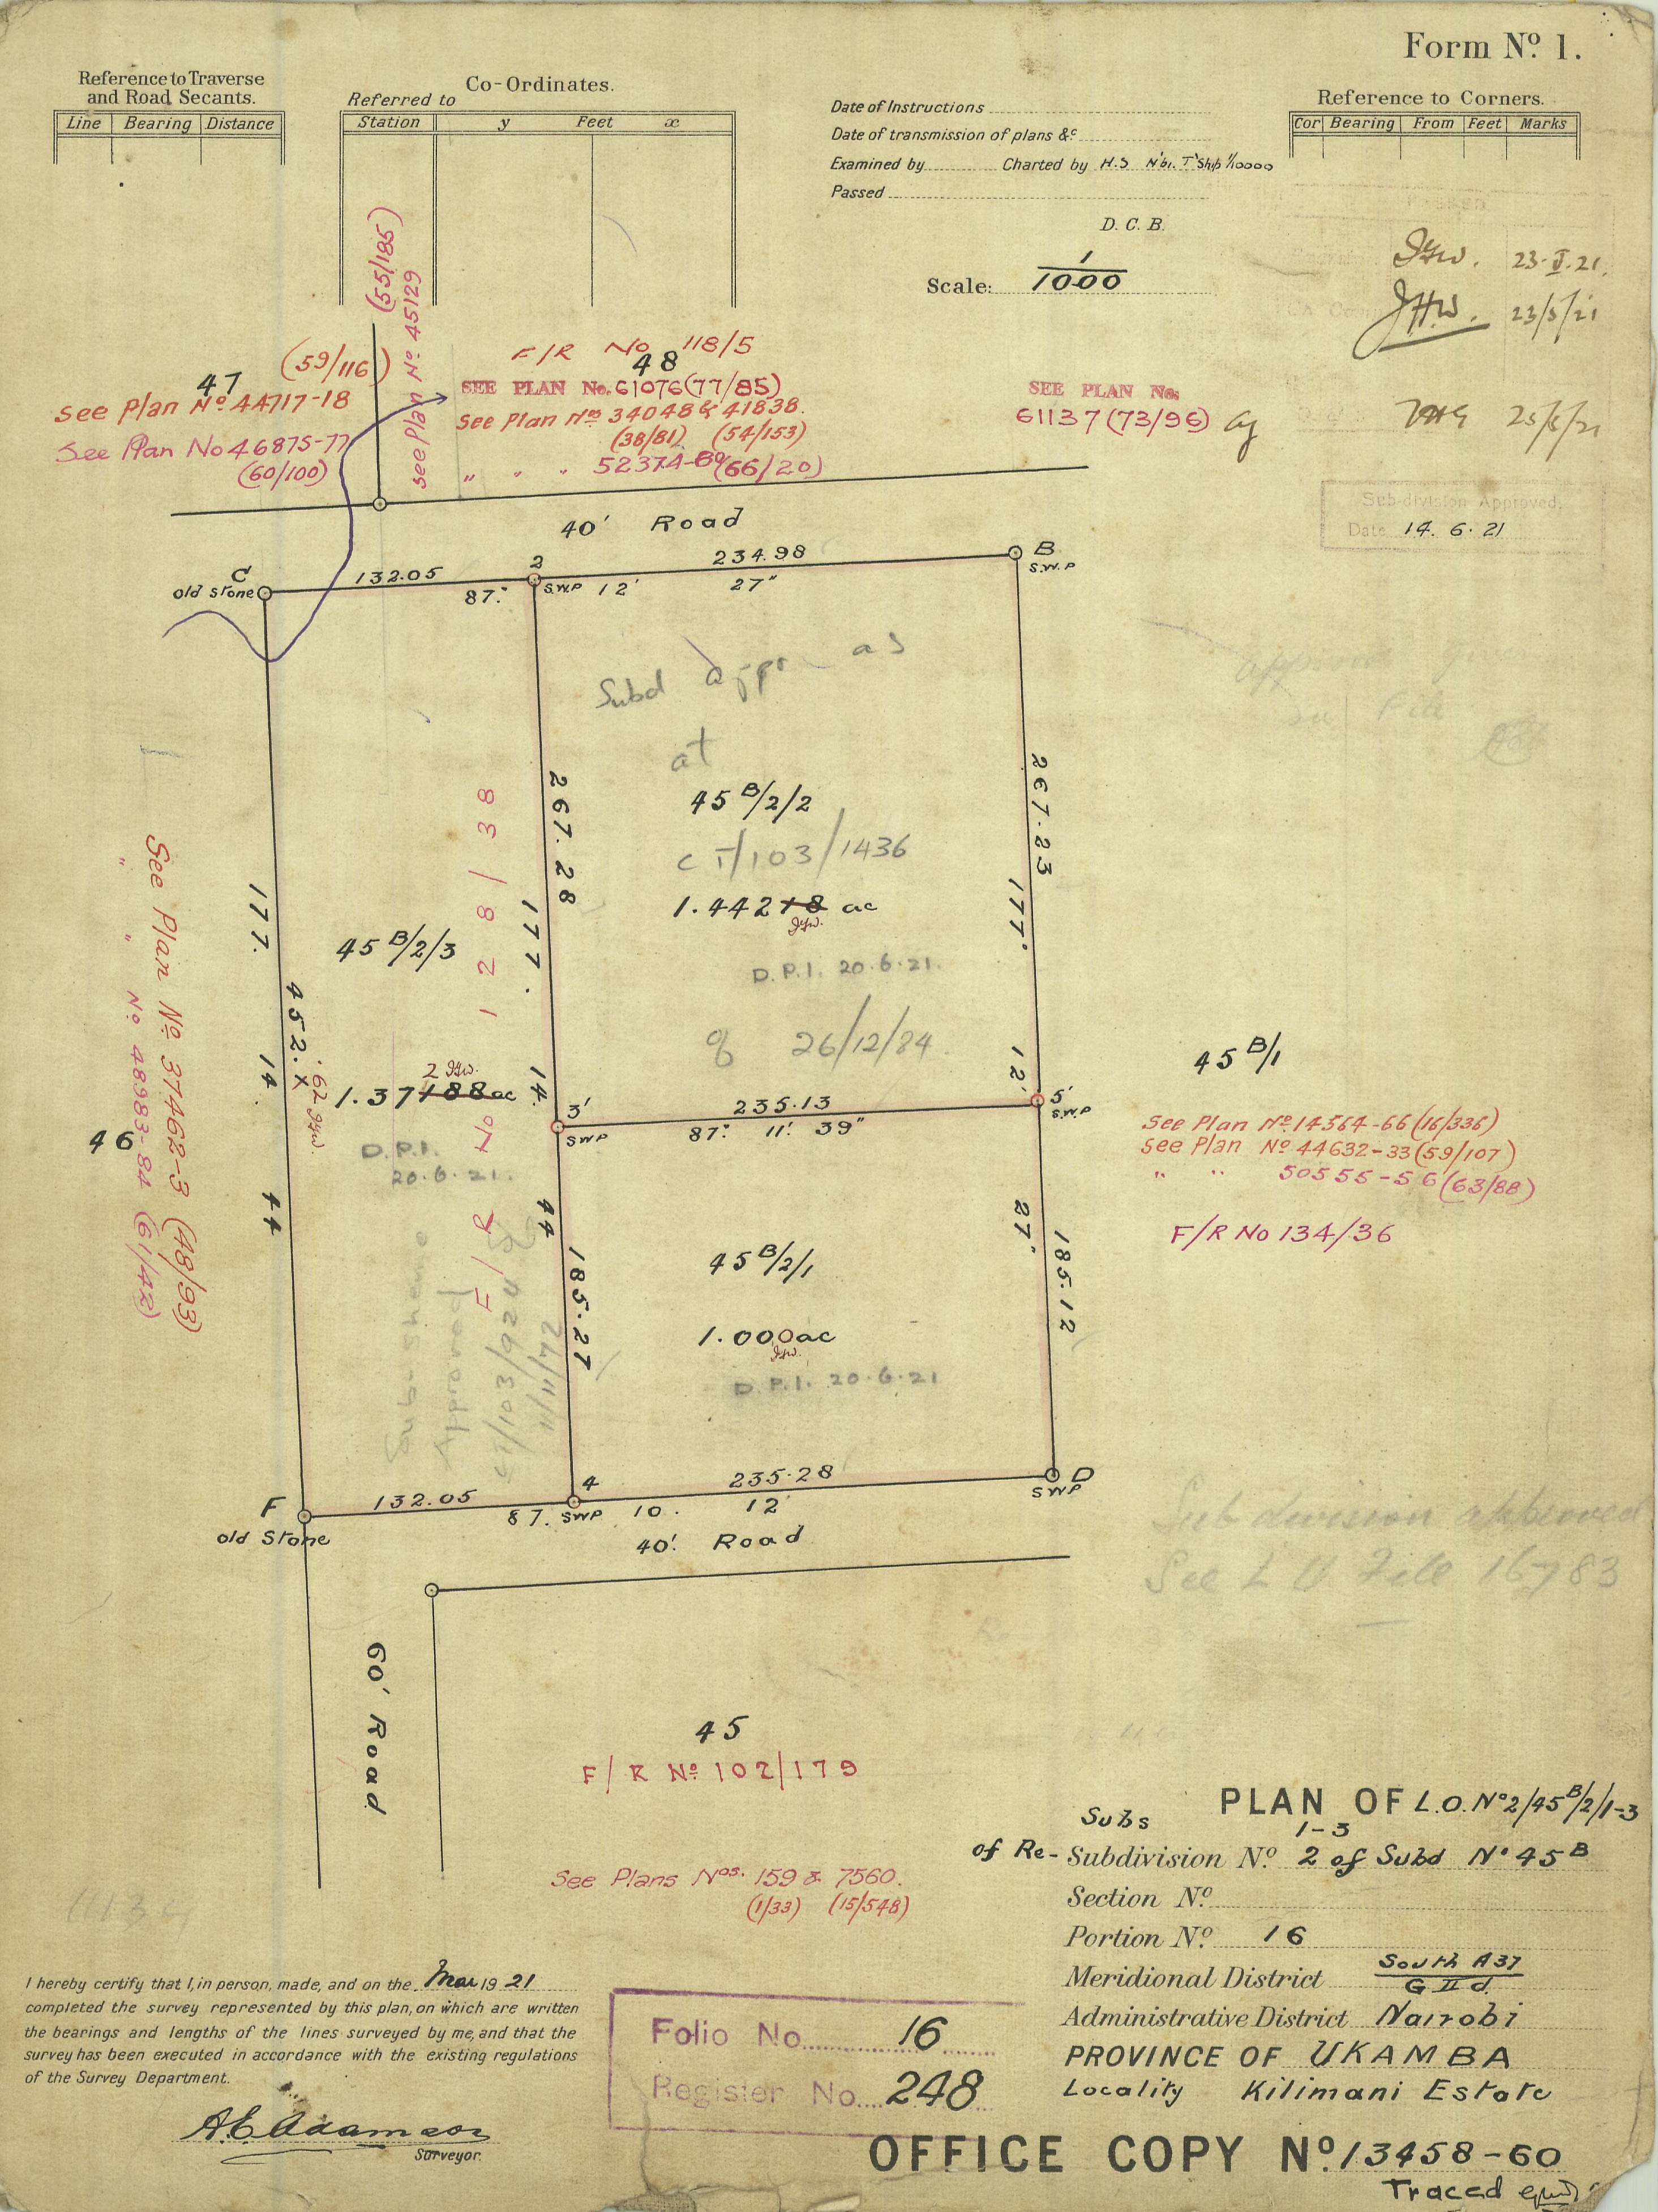 Form Nº 1.
Reference to Traverse
and Road Secants.
Line Bearing Distance
Co-Ordinates.
Referred to
Station y Feet x
Date of Instructions
Date of transmission of plans &c
Examined by Charted by H.S N'bi. T'Ship 1/10000
Passed
D. C. B.
Scale: 1/1000
Reference to Corners.
Cor Bearing From Feet Marks
23.5.21.
23/5/21
Sub-division Approved.
Date 14. 6. 21
(55/185)
see Plan Nº 45129
(59/116)
47
See Plan Nº 44717-18
See Plan No 46875-77
(60/100)
F/R No 118/5
48
SEE PLAN No. 61076(77/85)
See Plan Nos 34048 & 41838.
(38/81) (54/153)
" " " 52374-60(66/20)
SEE PLAN No.
61137(73/96)
40' Road
C
old stone
132.05
2
S.W.P
234.98
B
S.W.P
87° 12' 27"
Subd appr as
at
45 B/2/2
CT/103/1436
1.44218 ac
D.P.I. 20.6.21.
26/12/84
267.28
267.23
177° 12' 27"
177. 14. 44
185.27
185.12
177. 14. 44
452.
.62
45 B/2/3
1.37188ac
2
D.P.I.
20.6.21.
F/R No 128/38
Sub-sheme
Approved
CT/103/924
11/11/72
46
See Plan Nº 37462-3 (48/93)
" " Nº 48983-84 (61/42)
3'
SWP
235.13
87° 11' 39"
5'
S.W.P
45 B/1
See Plan Nº 14564-66 (16/336)
See Plan Nº 44632-33 (59/107)
" " 50555-56 (63/88)
F/R No 134/36
45 B/2/1
1.000ac
D.P.I. 20.6.21
F
old Stone
132.05
4
SWP
235.28
D
SWP
87. 10. 12
40' Road
60' Road
Sub division approved
See L O File 16783
45
F/R Nº 102/179
See Plans Nos. 159 & 7560.
(1/33) (15/548)
PLAN OF L.O. Nº 2/45B/2/1-3
Subs 1-3
of Re-Subdivision Nº 2 of Subd Nº 45 B
Section Nº
Portion Nº 16
Meridional District South A37
G II d.
Administrative District Nairobi
PROVINCE OF UKAMBA
Locality Kilimani Estate
I hereby certify that I, in person, made, and on the Mar 19 21
completed the survey represented by this plan, on which are written
the bearings and lengths of the lines surveyed by me, and that the
survey has been executed in accordance with the existing regulations
of the Survey Department.
A.C. Adamson
Surveyor.
Folio No. 16
Register No. 248
OFFICE COPY Nº 13458-60
Traced